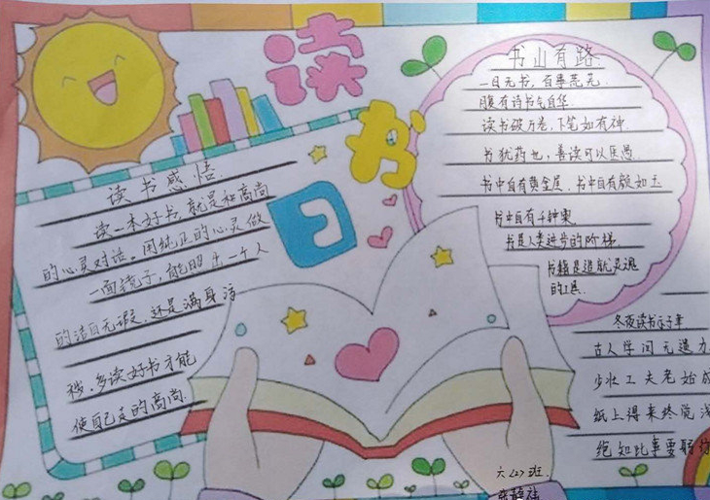 读书日
读书感悟
读一本好书,就是和高尚
的心灵对话。用纯正的心灵做
一面镜子,能照出一个人
的洁白无瑕,还是满身污
秽。多读好书才能
使自己走的高尚.
书山有路
一日无书,百事荒芜.
腹有诗书气自华
读书破万卷,下笔如有神.
书犹药也,善读可以医愚.
书中自有黄金屋,书中自有颜如玉
书中自有千钟粟
书是人类进步的阶梯.
书籍是造就灵魂
的工具.
冬夜读书示子聿
古人学问无遗力
少壮工夫老始成
纸上得来终觉浅
绝知此事要躬
六(2)班.